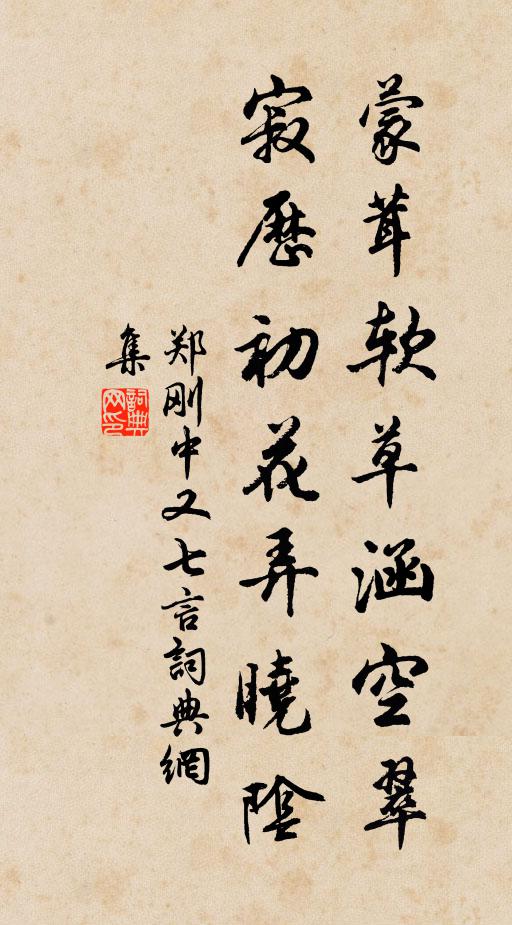 蒙茸软草涵空翠
寂歷初花弄曉陰
郑刚中又七言詞典網
集
詞典網印